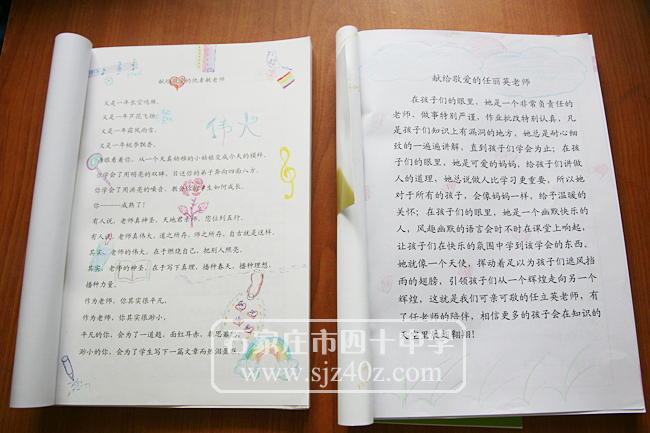 献给敬爱的焦素敏老师
又是一年长空鸿雁,
又是一年芦花飞扬;
又是一年霜风雨雪,
又是一年桃李飘香。
看着你,从一个天真幼稚的小姑娘变成今天的模样。
你学会了用明亮的双眸,目送你的弟子奔向四面八方。
你学会了用洪亮的嗓音,教会你的学生如何成长。
你——成熟了!
有人说,老师真神圣,天地君亲师,您位到五行。
有人说,老师真伟大,道之所存,师之所存,自古就是这样。
其实,老师的伟大,在于燃烧自己,把别人照亮。
其实,老师的神圣,在于写下真理,播种春天,播种理想,
播种力量。
作为老师,你其实很平凡,
作为老师,你其实很渺小,
平凡的你,会为了一道题,面红耳赤,
渺小的你,会为了学生写下一篇文章而热泪盈眶
伟大
献给敬爱的任丽英老师
在孩子们的眼里,她是一个非常负责任的
老师,做事特别严谨,作业批改特别认真,凡
是孩子们知识上有漏洞的地方,她总是耐心细
致的一遍遍讲解,直到孩子们学会为止;在孩
子们的眼里,她是可爱的妈妈,给孩子们讲做
人的道理,她总说做人比学习更重要,所以她
对于所有的孩子,会像妈妈一样,给予温暖的
关怀;在孩子们的眼里,她是一个幽默快乐的
人,风趣幽默的语言会时不时在课堂上响起,
让孩子们在快乐的氛围中学到该学会的东西,
她就像一个天使,挥动着足以为孩子们遮风挡
雨的翅膀,引领孩子们从一个辉煌走向另一个
辉煌,这就是我们可亲可敬的任立英老师,有
了任老师的陪伴,相信更多的孩子会在知识的
天空里展翅翱翔!
石家庄市四十中学
www.sjz40z.com